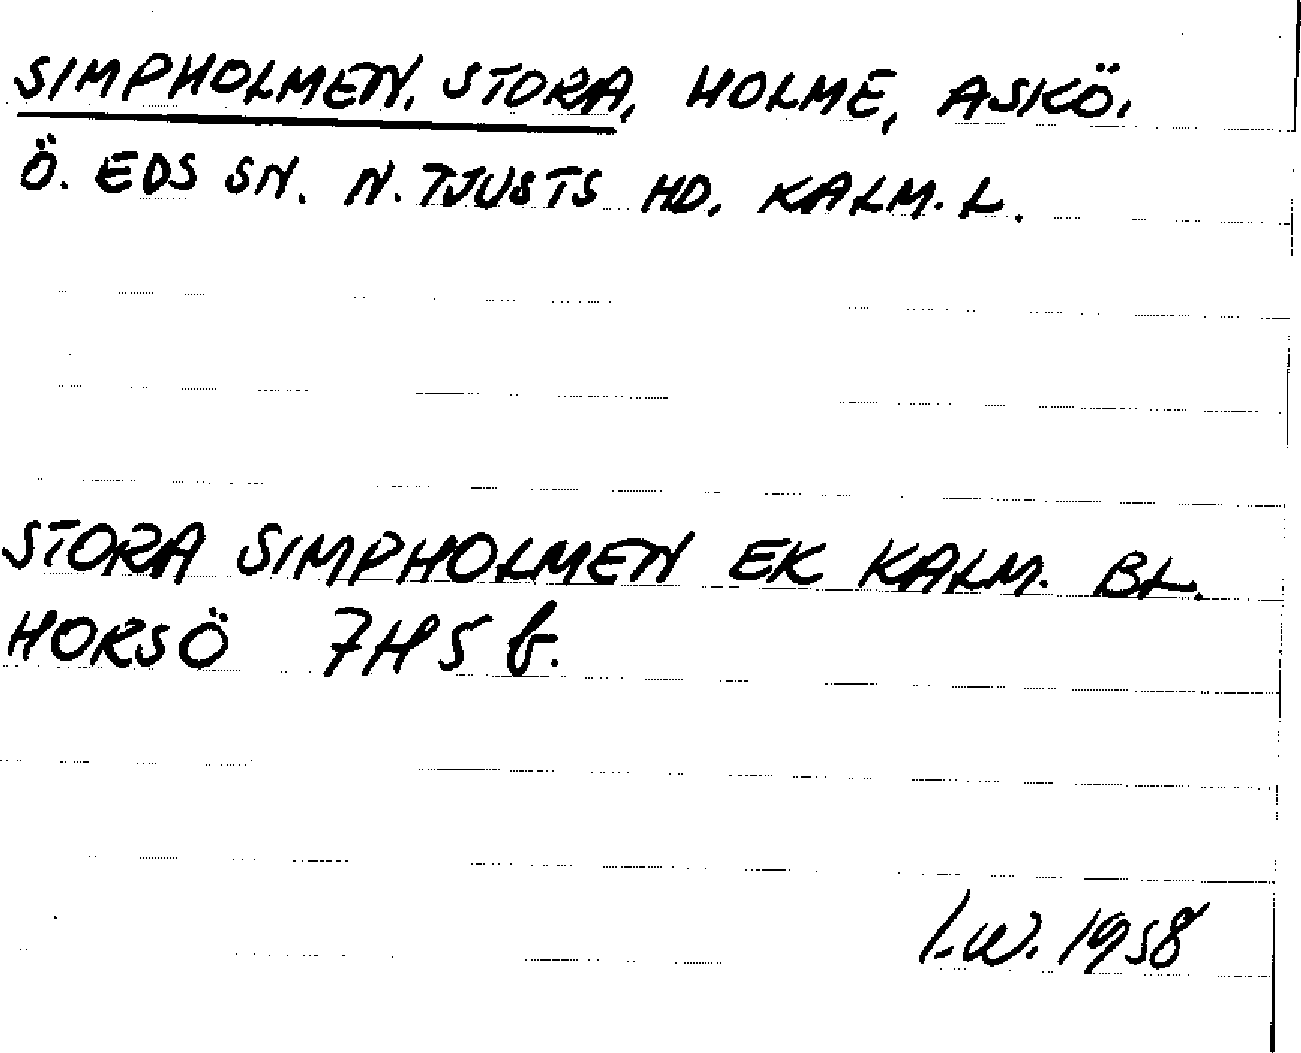 SIMPHOLMEN, STORA, HOLME, ASKÖ,
Ö. EDS SN. N. TJUSTS HD. KALM. L.
STORA SIMPHOLMEN EK KALM. BL.
HORSÖ 7H5 b.
I.W. 1958